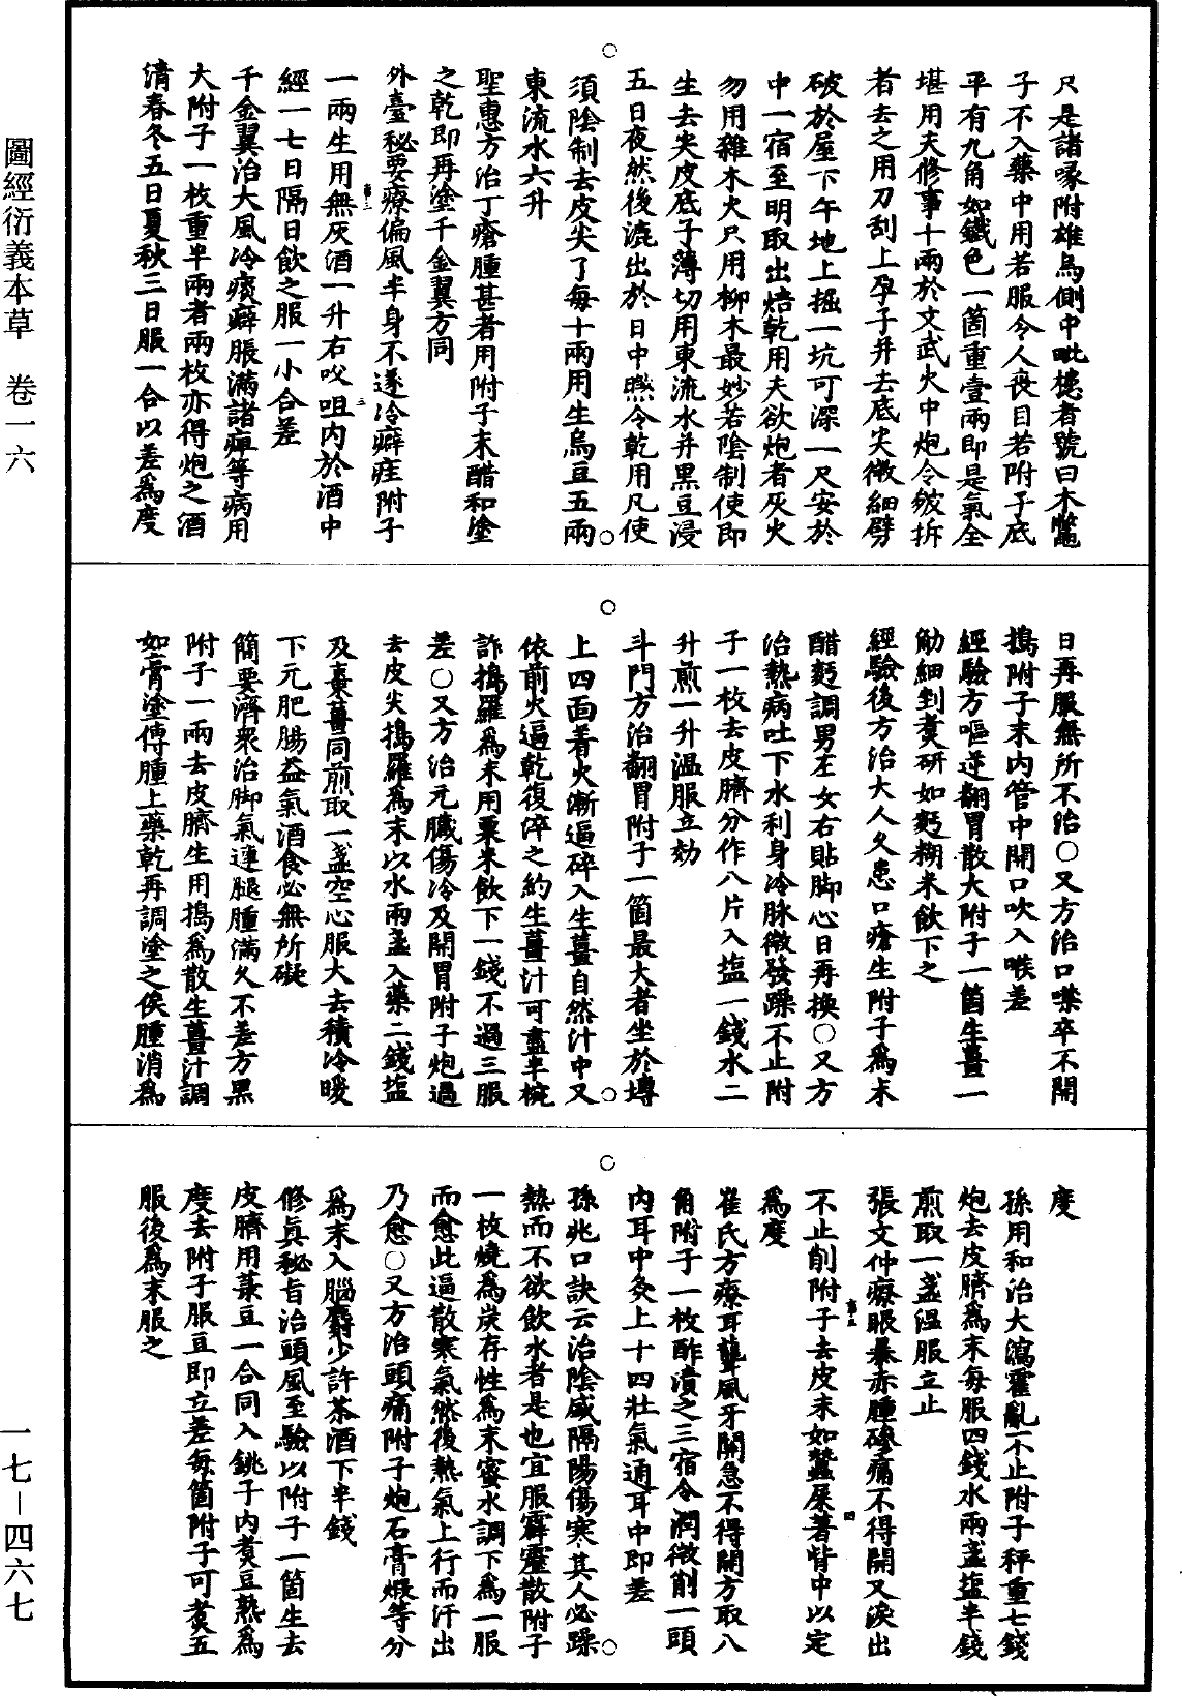 尺是諸喙附雄烏側中毗槵者號曰木鱉
子不入藥中用若服令人喪目若附子底
平有九角如鐵色一箇重壹兩即是氣全
堪用夫修事十兩於文武火中炮令皴拆
者去之用刀刮上孕子并去底尖微細劈
破於屋下午地上掘一坑可深一尺安於
中一宿至明取出焙乾用夫欲炮者灰火
勿用雜木火只用柳木最妙若陰制使即
生去尖皮底子薄切用東流水并黑豆浸
五日夜然後漉出於日中㬠令乾用凡使
須陰制去皮尖了每十兩用生烏豆五兩
東流水六升
聖惠方治丁瘡腫甚者用附子末醋和塗
之乾即再塗千金翼方同
外臺秘要療偏風半身不遂冷癖疰附子
一兩生用無灰酒一升右㕮咀内於酒中
經一七日隔日飲之服一小合差
千金翼治大風冷痰癖脹滿諸痺等病用
大附子一枚重半兩者兩枚亦得炮之酒
漬春冬五日夏秋三日服一合以差為度
日再服無所不治○又方治口噤卒不開
搗附子末内管中開口吹入喉差
經驗方嘔逆翻胃散大附子一箇生薑一
觔細剉煑研如麪糊米飲下之
經驗後方治大人久患口瘡生附子為末
醋麪調男左女右貼脚心日再換○又方
治熱病吐下水利身冷脉微發躁不止附
子一枚去皮臍分作八片入塩一錢水二
升煎一升溫服立効
斗門方治翻胃附子一箇最大者坐於塼
上四面着火漸逼碎入生薑自然汁中又
依前火逼乾復淬之約生薑汁可盡半椀
許搗羅為末用粟米飲下一錢不過三服
差○又方治元臟傷冷及開胃附子炮過
去皮尖搗羅為末以水兩盞入藥二錢塩
及棗薑同煎取一盞空心服大去積冷暖
下元肥腸益氣酒食必無所礙
簡要濟衆治脚氣連腿腫滿久不差方黑
附子一兩去皮臍生用搗為散生薑汁調
如膏塗傅腫上藥乾再調塗之俟腫消為
度
孫用和治大瀉霍亂不止附子秤重七錢
炮去皮臍為末每服四錢水兩盞塩半錢
煎取一盞溫服立止
張文仲療眼暴赤腫磣痛不得開又淚出
不止削附子去皮末如蠶屎著眥中以定
為度
崔氏方療耳聾風牙關急不得開方取八
角附子一枚酢漬之三宿令潤微削一頭
内耳中灸上十四壯氣通耳中即差
孫兆口訣云治陰盛隔陽傷寒其人必躁
熱而不欲飲水者是也宜服霹靂散附子
一枚燒為炭存性為末蜜水調下為一服
而愈此逼散寒氣然後熱氣上行而汗出
乃愈○又方治頭痛附子炮石膏煅等分
為末入腦麝少許茶酒下半錢
修真秘旨治頭風至驗以附子一箇生去
皮臍用菉豆一合同入銚子内煑豆熟為
度去附子服豆即立差每箇附子可煑五
服後為末服之
圖經衍義本草　卷一六
一七－四六七